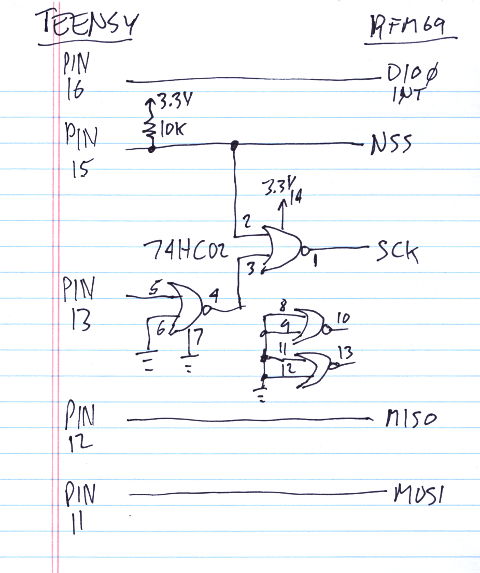 TEENSY RFM69
PIN 16 DIO0 INT
3.3V
10K
PIN 15 NSS
3.3V
14
2
74HC02
3
1
SCK
PIN 13
5
4
6
7
8
9
10
11
12
13
PIN 12 MISO
PIN 11 MOSI